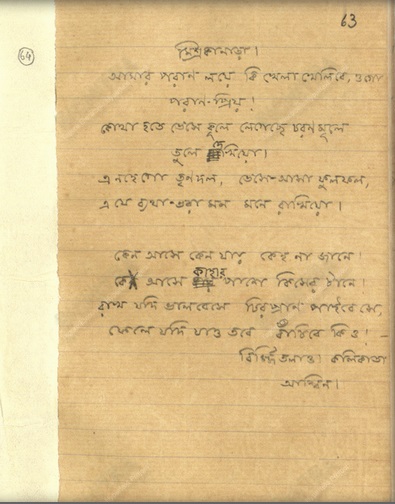 63
64
মিশ্রকানাড়া।
আমার পরান লয়ে কি খেলা খেলিবে, ওগো
পরান-প্রিয়!
কোথা হতে ভেসে কূলে লেগেছে চরণমূলে
তুলে দেখিয়ো।
এ নহে গো তৃণদল, ভেসে-আসা ফুলফল,
এ যে ব্যথা-ভরা মন মনে রাখিয়ো।
কেন আসে কেন যায় কেহ না জানে!
কে আসে কাহার পাশে কিসের টানে!
রাখ যদি ভালবেসে চিরপ্রাণ পাইবে সে,
ফেলে যদি যাও তবে বাঁচিবে কি ও! –
বির্জিতলাও। কলিকাতা
আশ্বিন।